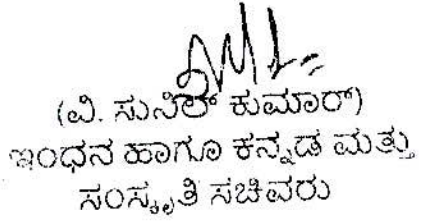 (ವಿ. ಸುನಿಲ್ ಕುಮಾರ್)
ಇಂಧನ ಹಾಗೂ ಕನ್ನಡ ಮತ್ತು
ಸಂಸ್ಕೃತಿ ಸಚಿವರು